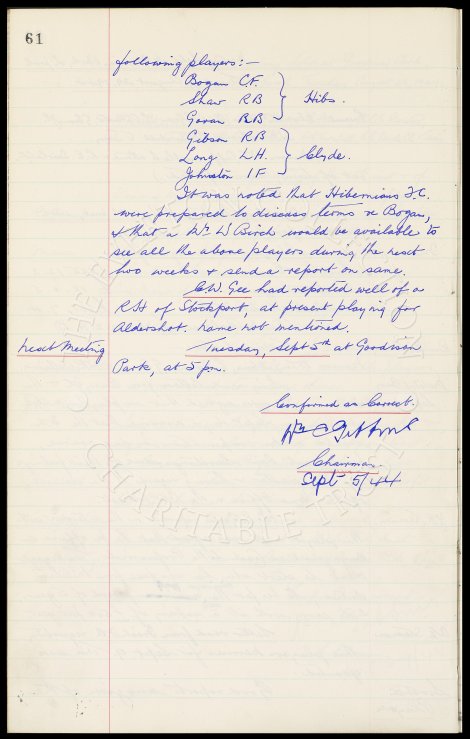 61
following players :-
Bogan CF.
Shaw RB
Govan RB
Hibs.
Gibson RB
Long LH.
Johnston IF
Clyde.
It was noted that Hibernians F.C.
were prepared to discuss terms re Bogan,
& that a Mr W Birch would be available to
see all the above players during the next
two weeks & send a report on same.
C.W. Gee had reported well of a
RH of Stockport, at present playing for
Aldershot. name not mentioned.
Next Meeting
Tuesday, Sept 5th at Goodison
Park, at 5 pm.
Confirmed as Correct.
Wm C Gibbins
Chairman
Sept 5/44
CHARITABLE TRUST